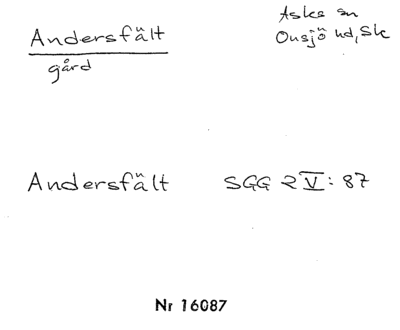 Andersfält
gård
Aske sn
Onsjö hd, Sk
Andersfält SGG 2 V: 87
Nr 16087